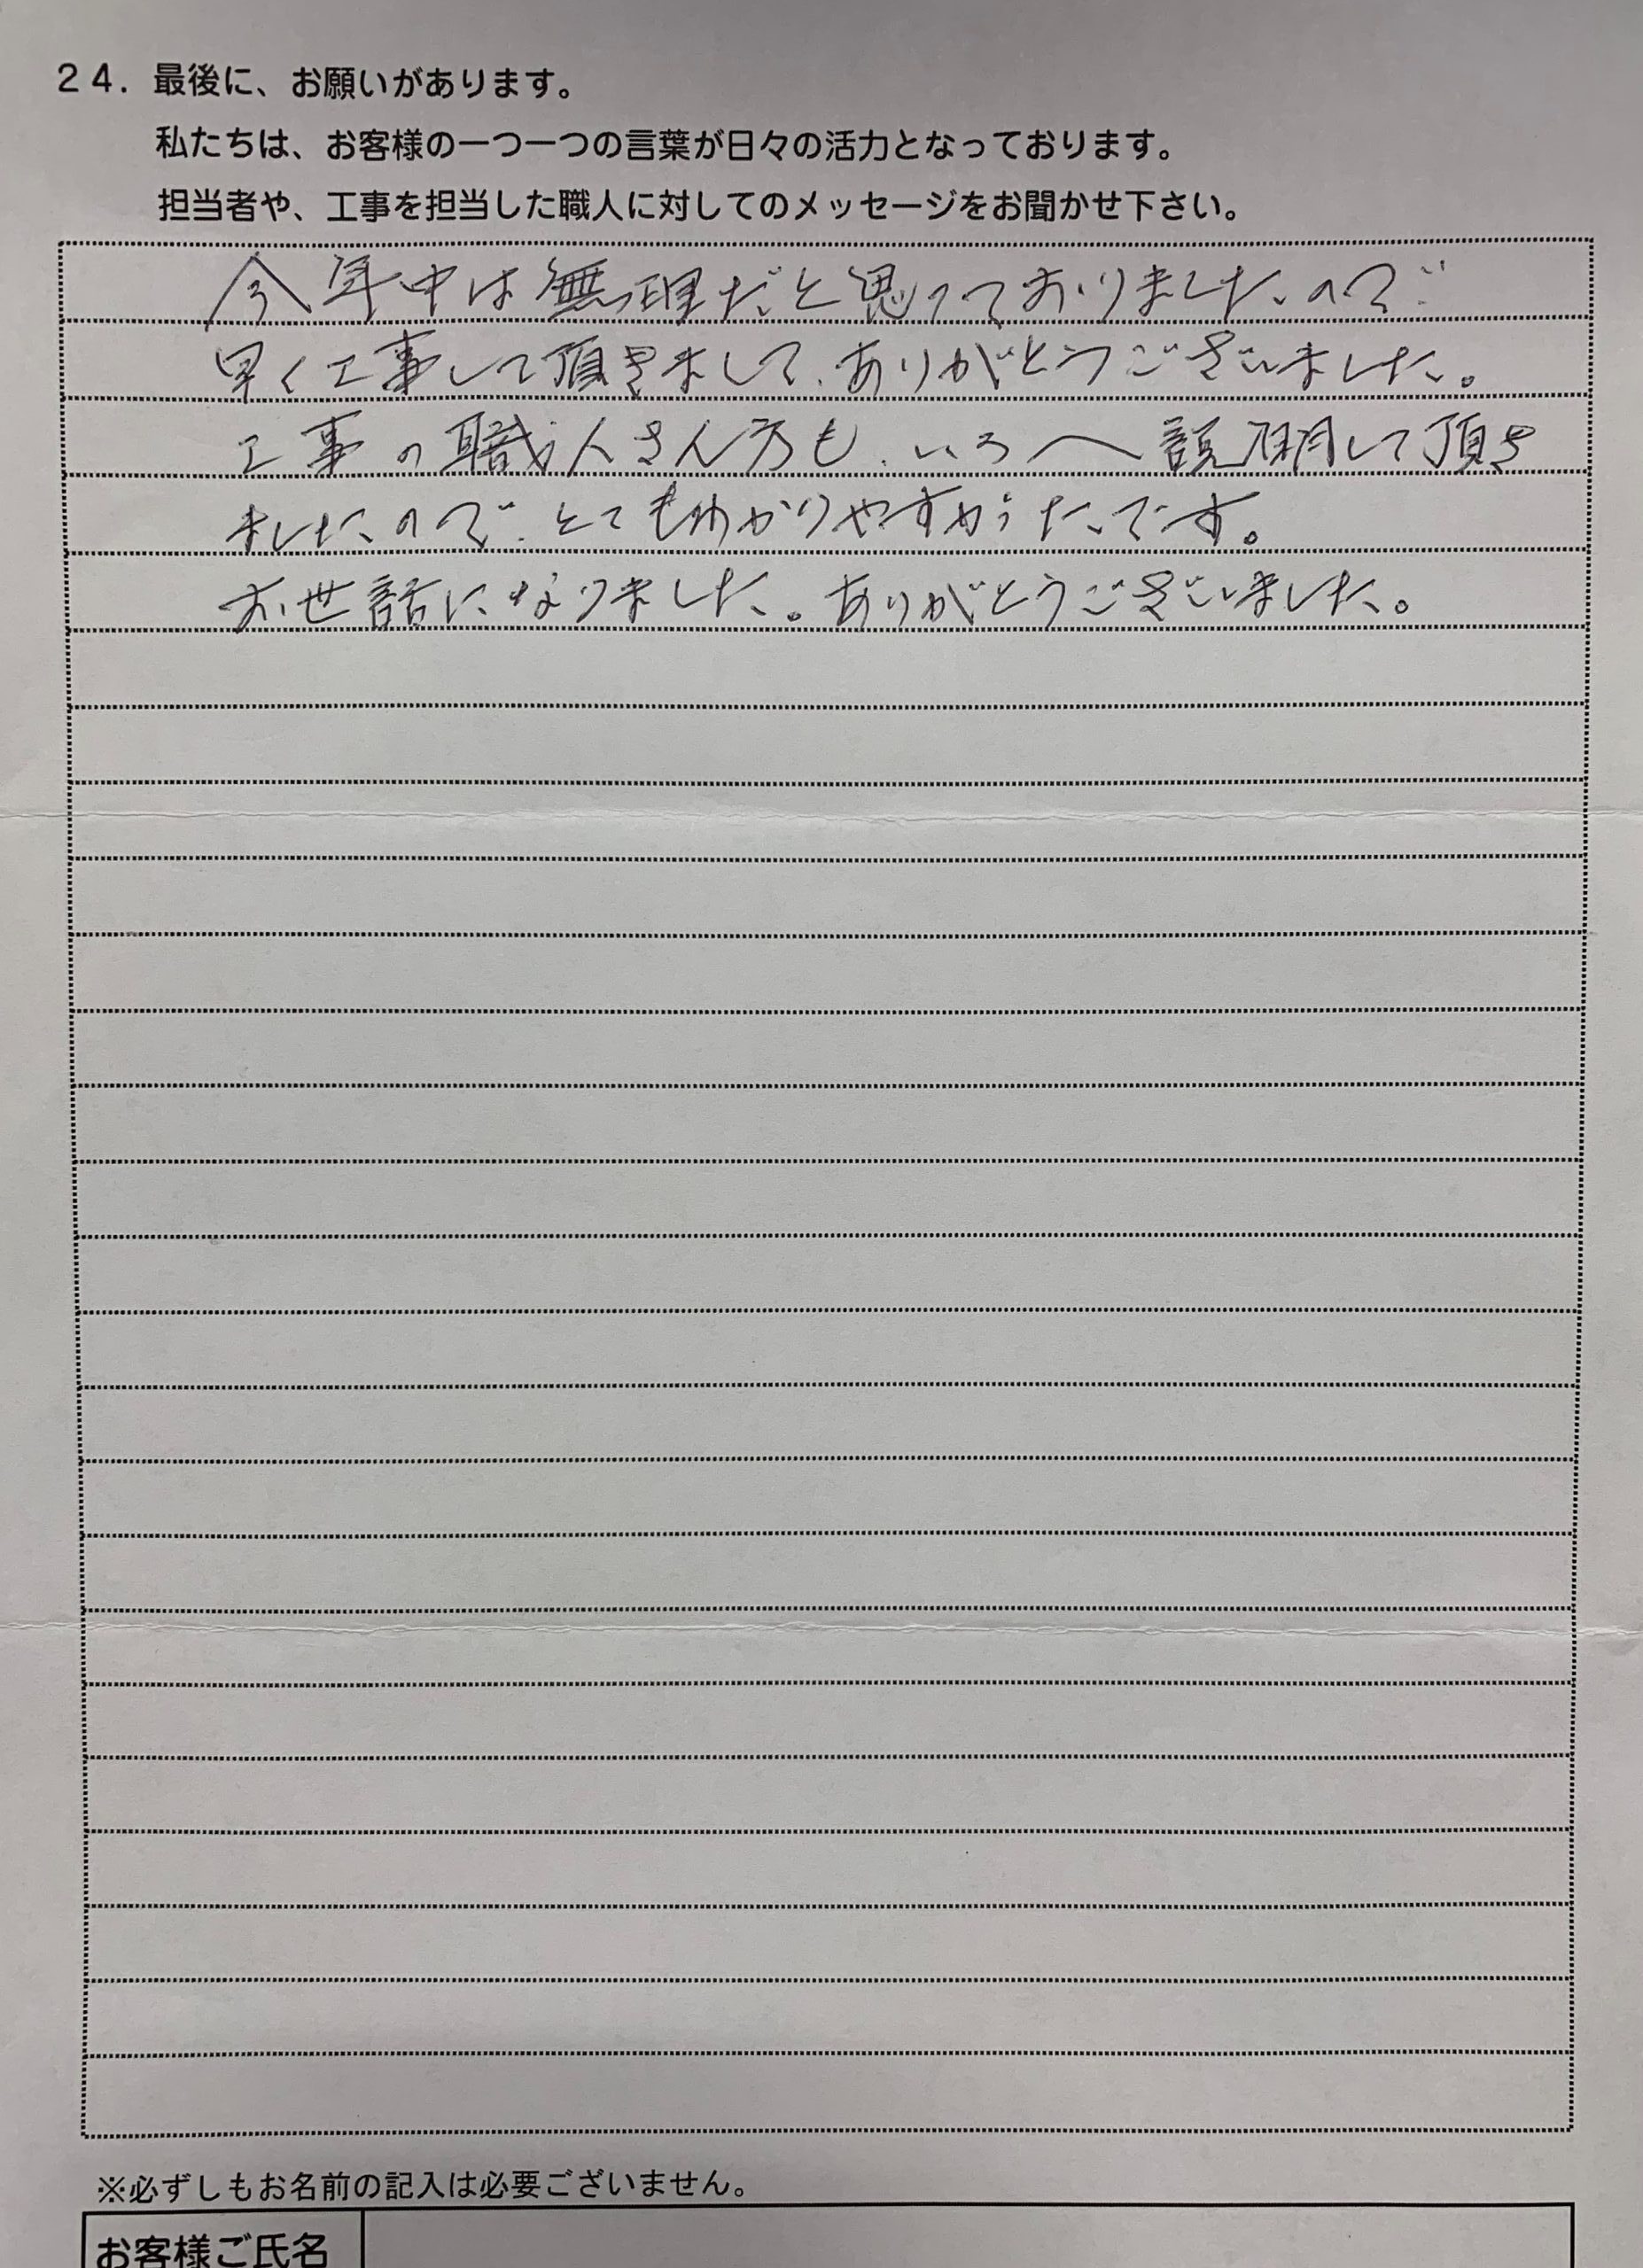 24. 最後に、お願いがあります。
私たちは、お客様の一つ一つの言葉が日々の活力となっております。
担当者や、工事を担当した職人に対してのメッセージをお聞かせ下さい。
今年中は無理だと思っておりましたので
早く工事して頂きまして、ありがとうございました。
工事の職人さん方も、いろ〳〵説明して頂き
ましたので、とてもわかりやすかったです。
お世話になりました。ありがとうございました。
※必ずしもお名前の記入は必要ございません。
お客様ご氏名